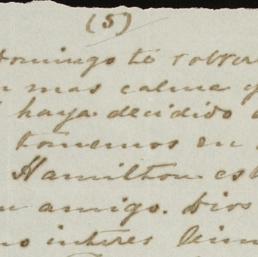 (5)
Domingo te
mas calma y
haya decidido
tomemos en
Hamilton es
amigo. Dios
interes